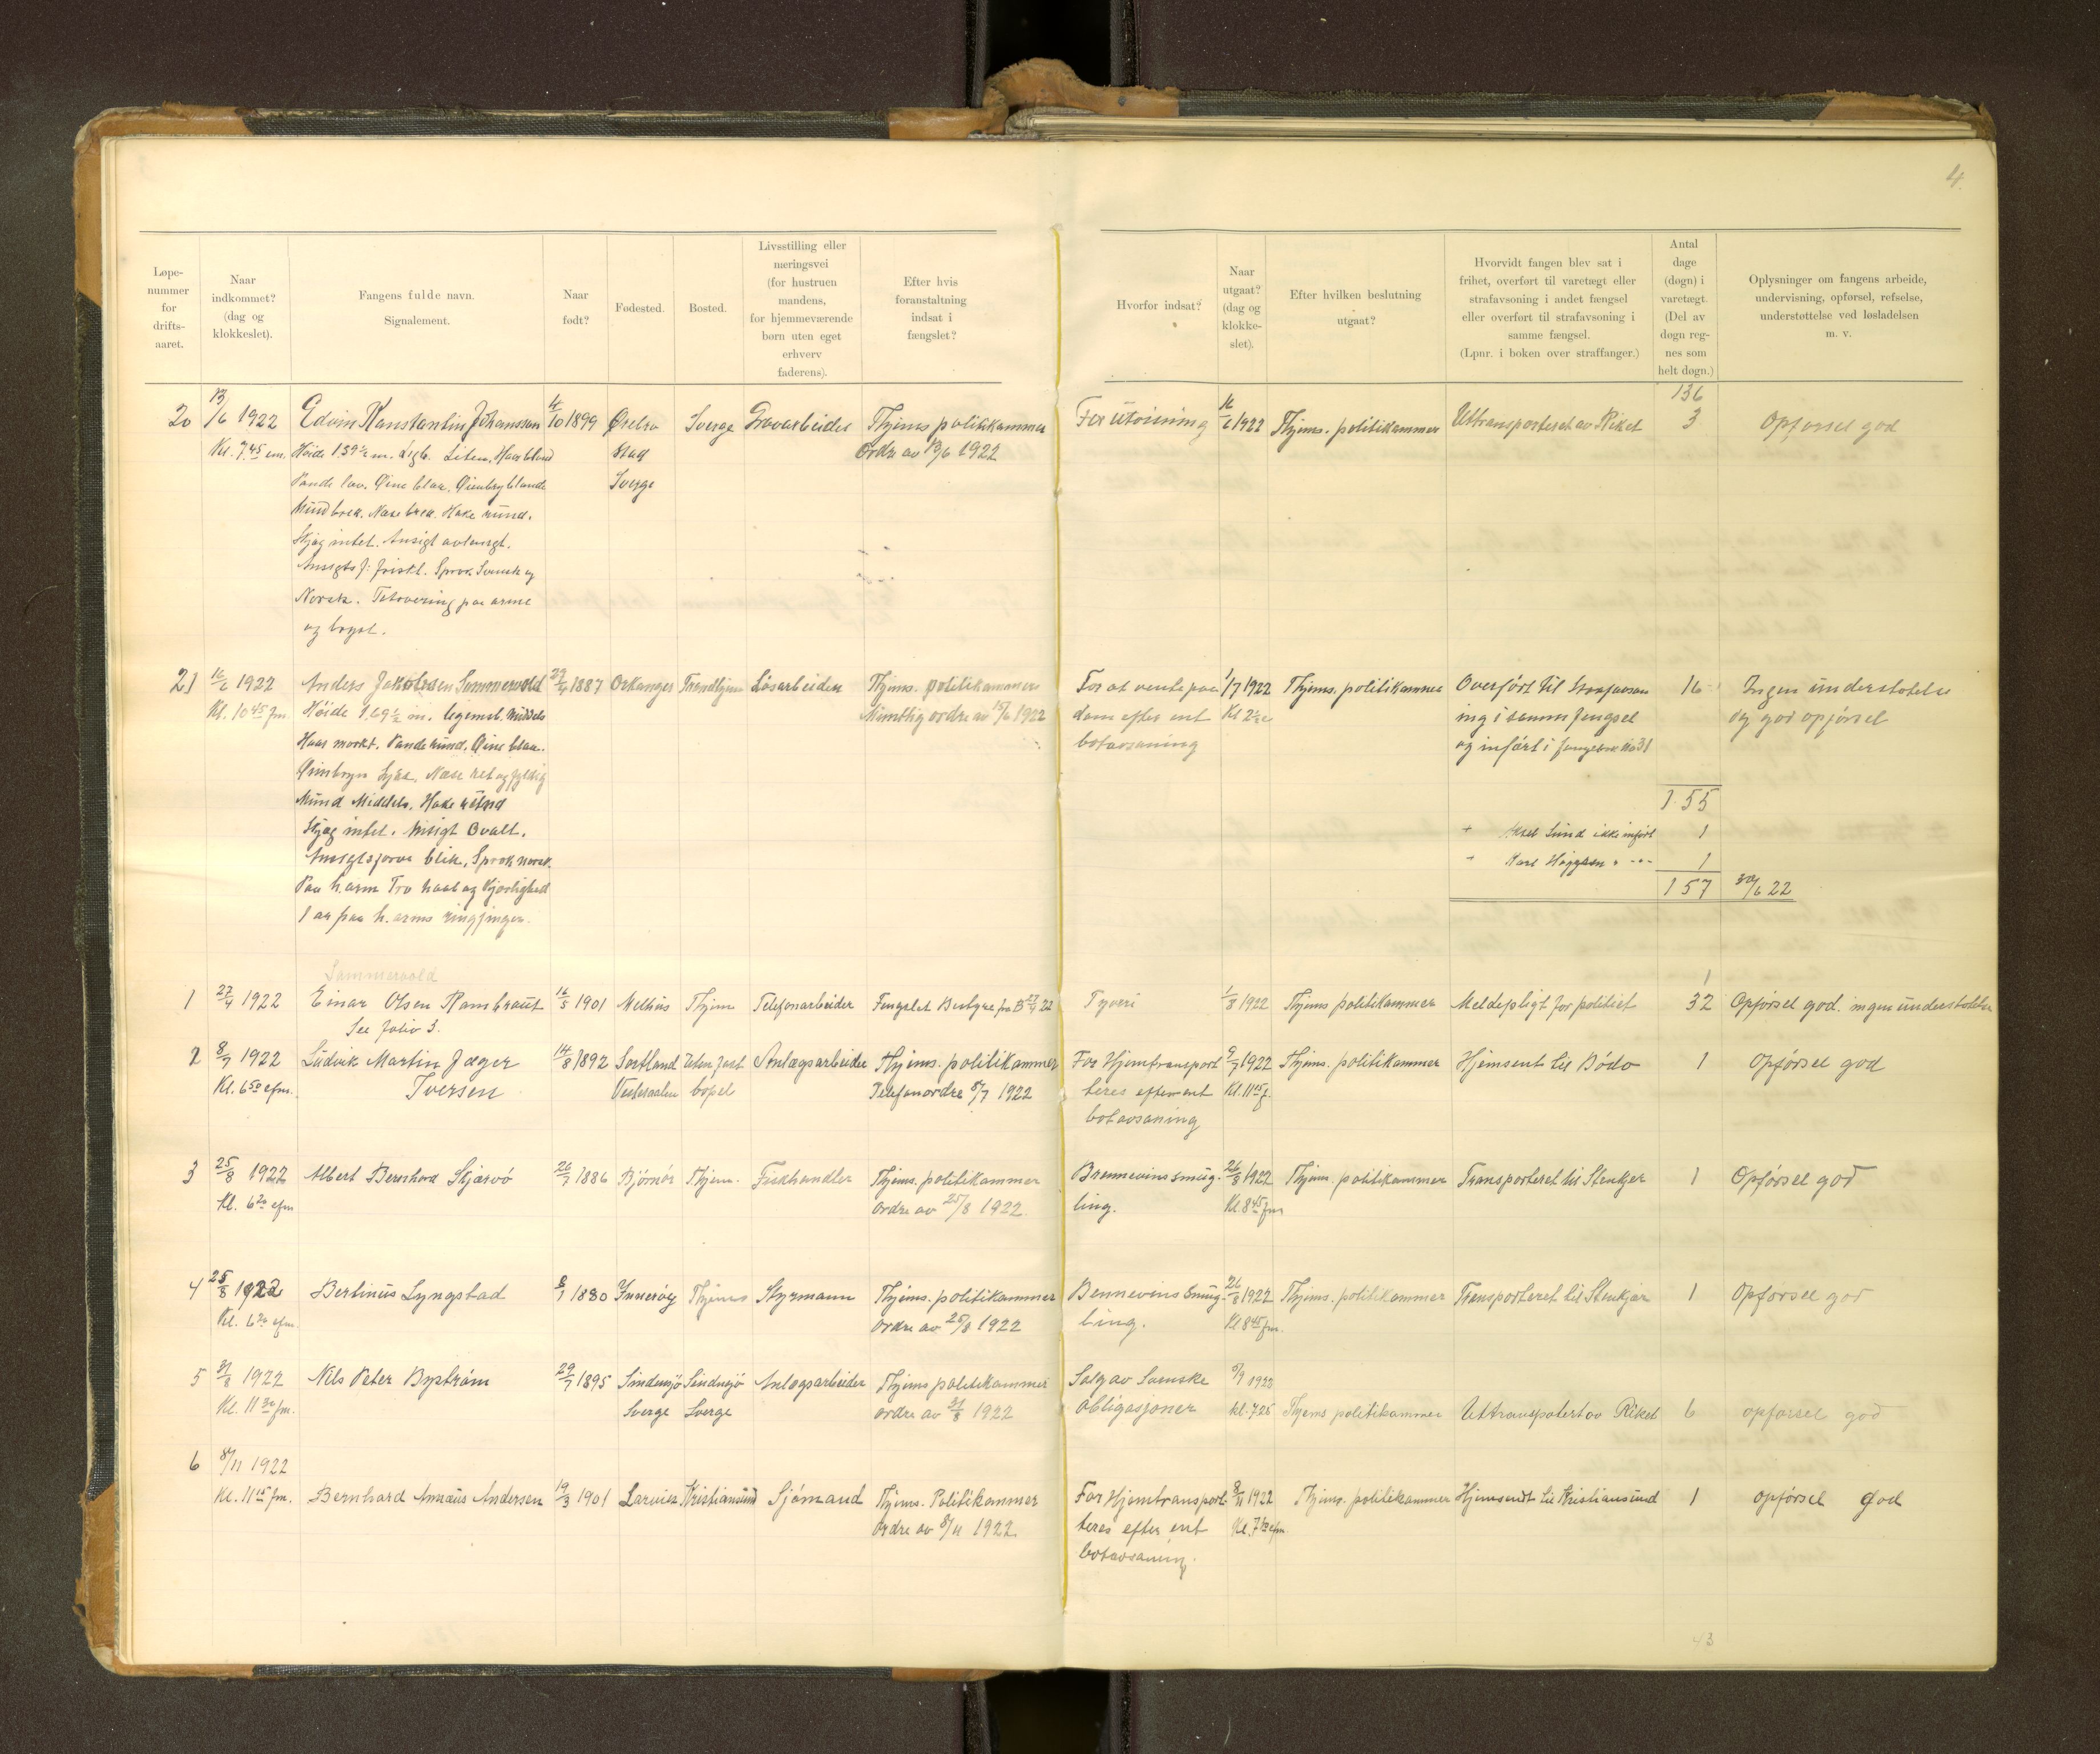 4.
Løpe-
nummer
for
drifts-
aaret.
Naar
indkommet?
(dag og
klokkeslet).
Fangens fulde navn.
Signalement.
Naar
født?
Fødested.
Bosted.
Livsstilling eller
næringsvei
(for hustruen
mandens,
for hjemmeværende
børn uten eget
erhverv
faderens).
Efter hvis
foranstaltning
indsat i
fængslet?
Hvorfor indsat?
Naar
utgaat?
(dag og
klokke-
slet).
Efter hvilken beslutning
utgaat?
Hvorvidt fangen blev sat i
frihet, overført til varetægt eller
strafavsoning i andet fængsel
eller overført til strafavsoning i
samme fængsel.
(Lpnr. i boken over straffanger.)
Antal
dage
(døgn) i
varetægt.
(Del av
døgn reg-
nes som
helt døgn.)
Oplysninger om fangens arbeide,
undervisning, opførsel, refselse,
understøttelse ved løsladelsen
m. v.
136
20 13/6 1922 Edvin Konstantin Johansson 14/10 1899 Ørebro Sverge Gravarbeider Thjems politikammer For utvisning 16/6 1922 Thjems. politikammer Uttransporteret av Riket 3 Opførsel god
Kl. 7.45 em. Høide 1.59½ m. Legb. Liten. Haar blond Stad ordre av 13/6 1922
Pande lav. Øine blaa. Øienbryn blonde Sverge
Mund bred. Nase bred. Hake rund.
Skjæg intet. Ansigt avlangt.
Ansigts f: friskt. Sprok Svensk og
Norsk. Tatovering paa arme
og bryst.
21 16/6 1922 Anders Jakobsen Sommervold 29/4 1887 Orkanger Trondhjem Løsarbeider Thjems. politikammer For at vente paa 1/7 1922 Thjems. politikammer Overført til strafavson 16 Ingen understøtelse
Kl. 10 45 fm. Høide 1.69½ m. legemsb. Middels Muntlig ordre av 15/6 1922 dom efter ent Kl 2½ e ing i samme fengsel og god opførsel
Haar mørkt. Pande rund. Øine blaa. botavsoning og inført i fangebok No 31
Øienbryn lyse. Næse ret og fyldig
Mund Middels. Hake rund 155
Skjæg intet. Ansigt Ovalt. + Aksel Sund ikke inført 1
Ansigtsfarve blek. Sprok norsk. + Karl 1
Paa h. arm Tro haab og Kjærlighed 157 30/6 22
1 ar paa h. arms ringfinger.
Sommervold 1
1 27/4 1922 Einar Olsen Rambraut 16/5 1901 Melhus Thjem Telefonarbeider Fengslet Tyveri 1/8 1922 Thjems politikammer Meldepligt for politiet 32 Opførsel god. ingen understøttelse
See folio 3.
2 8/7 1922 Ludvik Martin Jæger 14/8 1892 Sortland Uten fast Anlægsarbeider Thjems. politikammer For Hjemtransport 9/7 1922 Thjems. politikammer Hjemsent til Bodø 1 Opførsel god
Kl. 6 50 efm. Iversen Vesteraalen bopel Telefonordre 8/7 1922 teres efter ent Kl. 11 15 f.
botavsoning
3 25/8 1922 Albert Bernhard Skjærvö 26/7 1886 Bjørnør Thjem. Fiskhandler Thjems. politikammer Brennevinssmug- 26/8 1922 Thjems. politikammer Transporteret til Stenkjer 1 Opførsel god
Kl. 6 20 efm ordre av 25/8 1922. ling. Kl 8 45 fm
4 25/8 1922 Bertinus Lyngstad 8/1 1880 Inderøy Thjems Styrmann Thjems. politikammer Bennevins smug- 26/8 1922 Thjems. politikammer Transporteret til Stenkjær 1 Opførsel god
Kl. 6 20 efm. ordre av 25/8 1922 ling. Kl 8 45 fm.
5 31/8 1922 Nils Peter Byström 29/7 1895 Sindensjø Sindensjø Anlægsarbeider Thjems politikammer Salg av Svenske 5/9 1922
Kl. 11 30 fm. Sverge Sverge ordre av 31/8 1922 obligasjoner kl. 7.25 Thjems politikammer Uttransportert av Riket 6 opførsel god
6 8/11 1922
Kl. 11 15 fm. Bernhard Andersen 19/3 1901 Larvik Kristiansund Sjømand Thjems. Politikammer For Hjemtransport 8/11 1922 Thjems. politikammer Hjemsendt til Kristiansund 1 opførsel god
ordre av 8/11 1922. teres efter ent Kl. 7½ efm.
botavsoning.
43